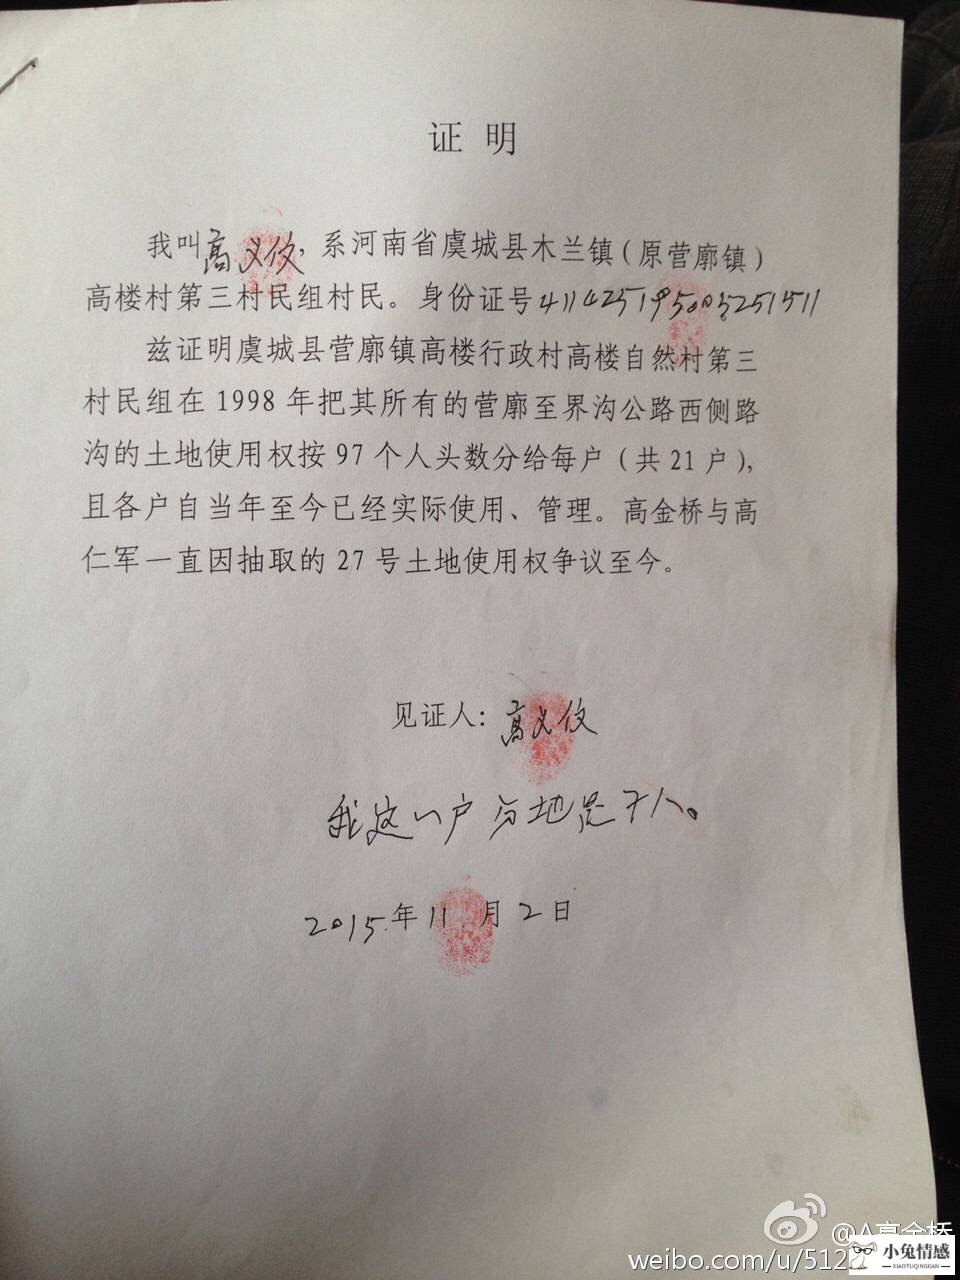 证 明
我叫高义仪，系河南省虞城县木兰镇（原营廓镇）
高楼村第三村民组村民。身份证号
兹证明虞城县营廓镇高楼行政村高楼自然村第三
村民组在 1998 年把其所有的营廓至界沟公路西侧路
沟的土地使用权按 97 个人头数分给每户（共 21 户），
且各户自当年至今已经实际使用、管理。高金桥与高
仁军一直因抽取的 27 号土地使用权争议至今。
见证人：高义仪
我这一户分地是
2015年11月2日
@A高金桥
weibo.com/u/512
小兔情感
XIAOTUQINGGAN